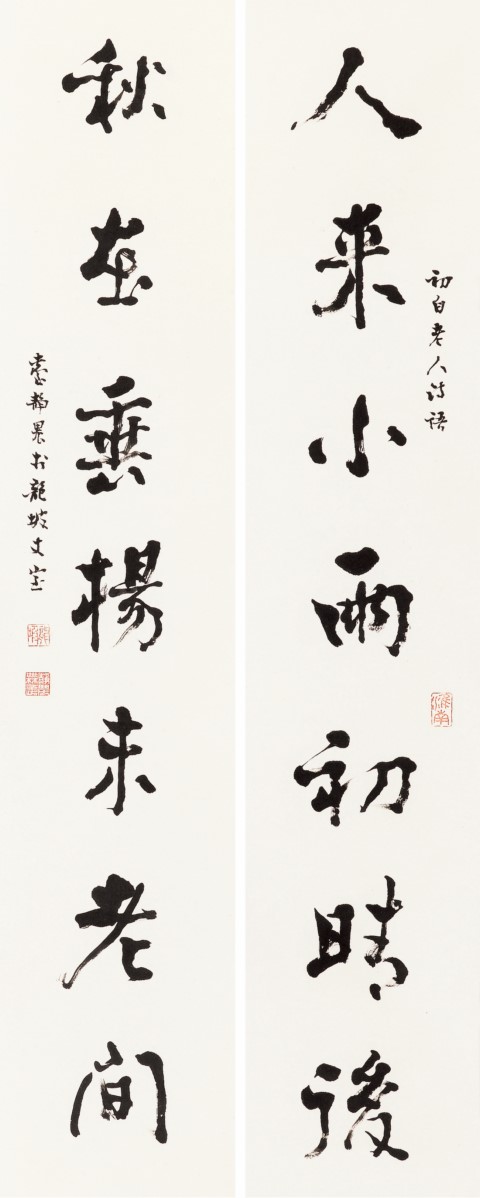 人来小雨初晴後
初白老人诗語
秋在垂楊未老間
臺静農於龍坡丈室